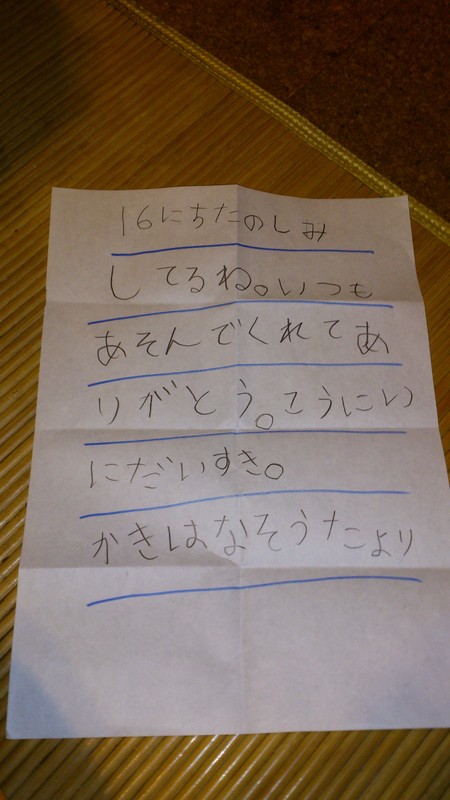 16にちたのしみ
してるね。いつも
あそんでくれてあ
りがとう。こうにい
にだいすき。
かきはなそうたより